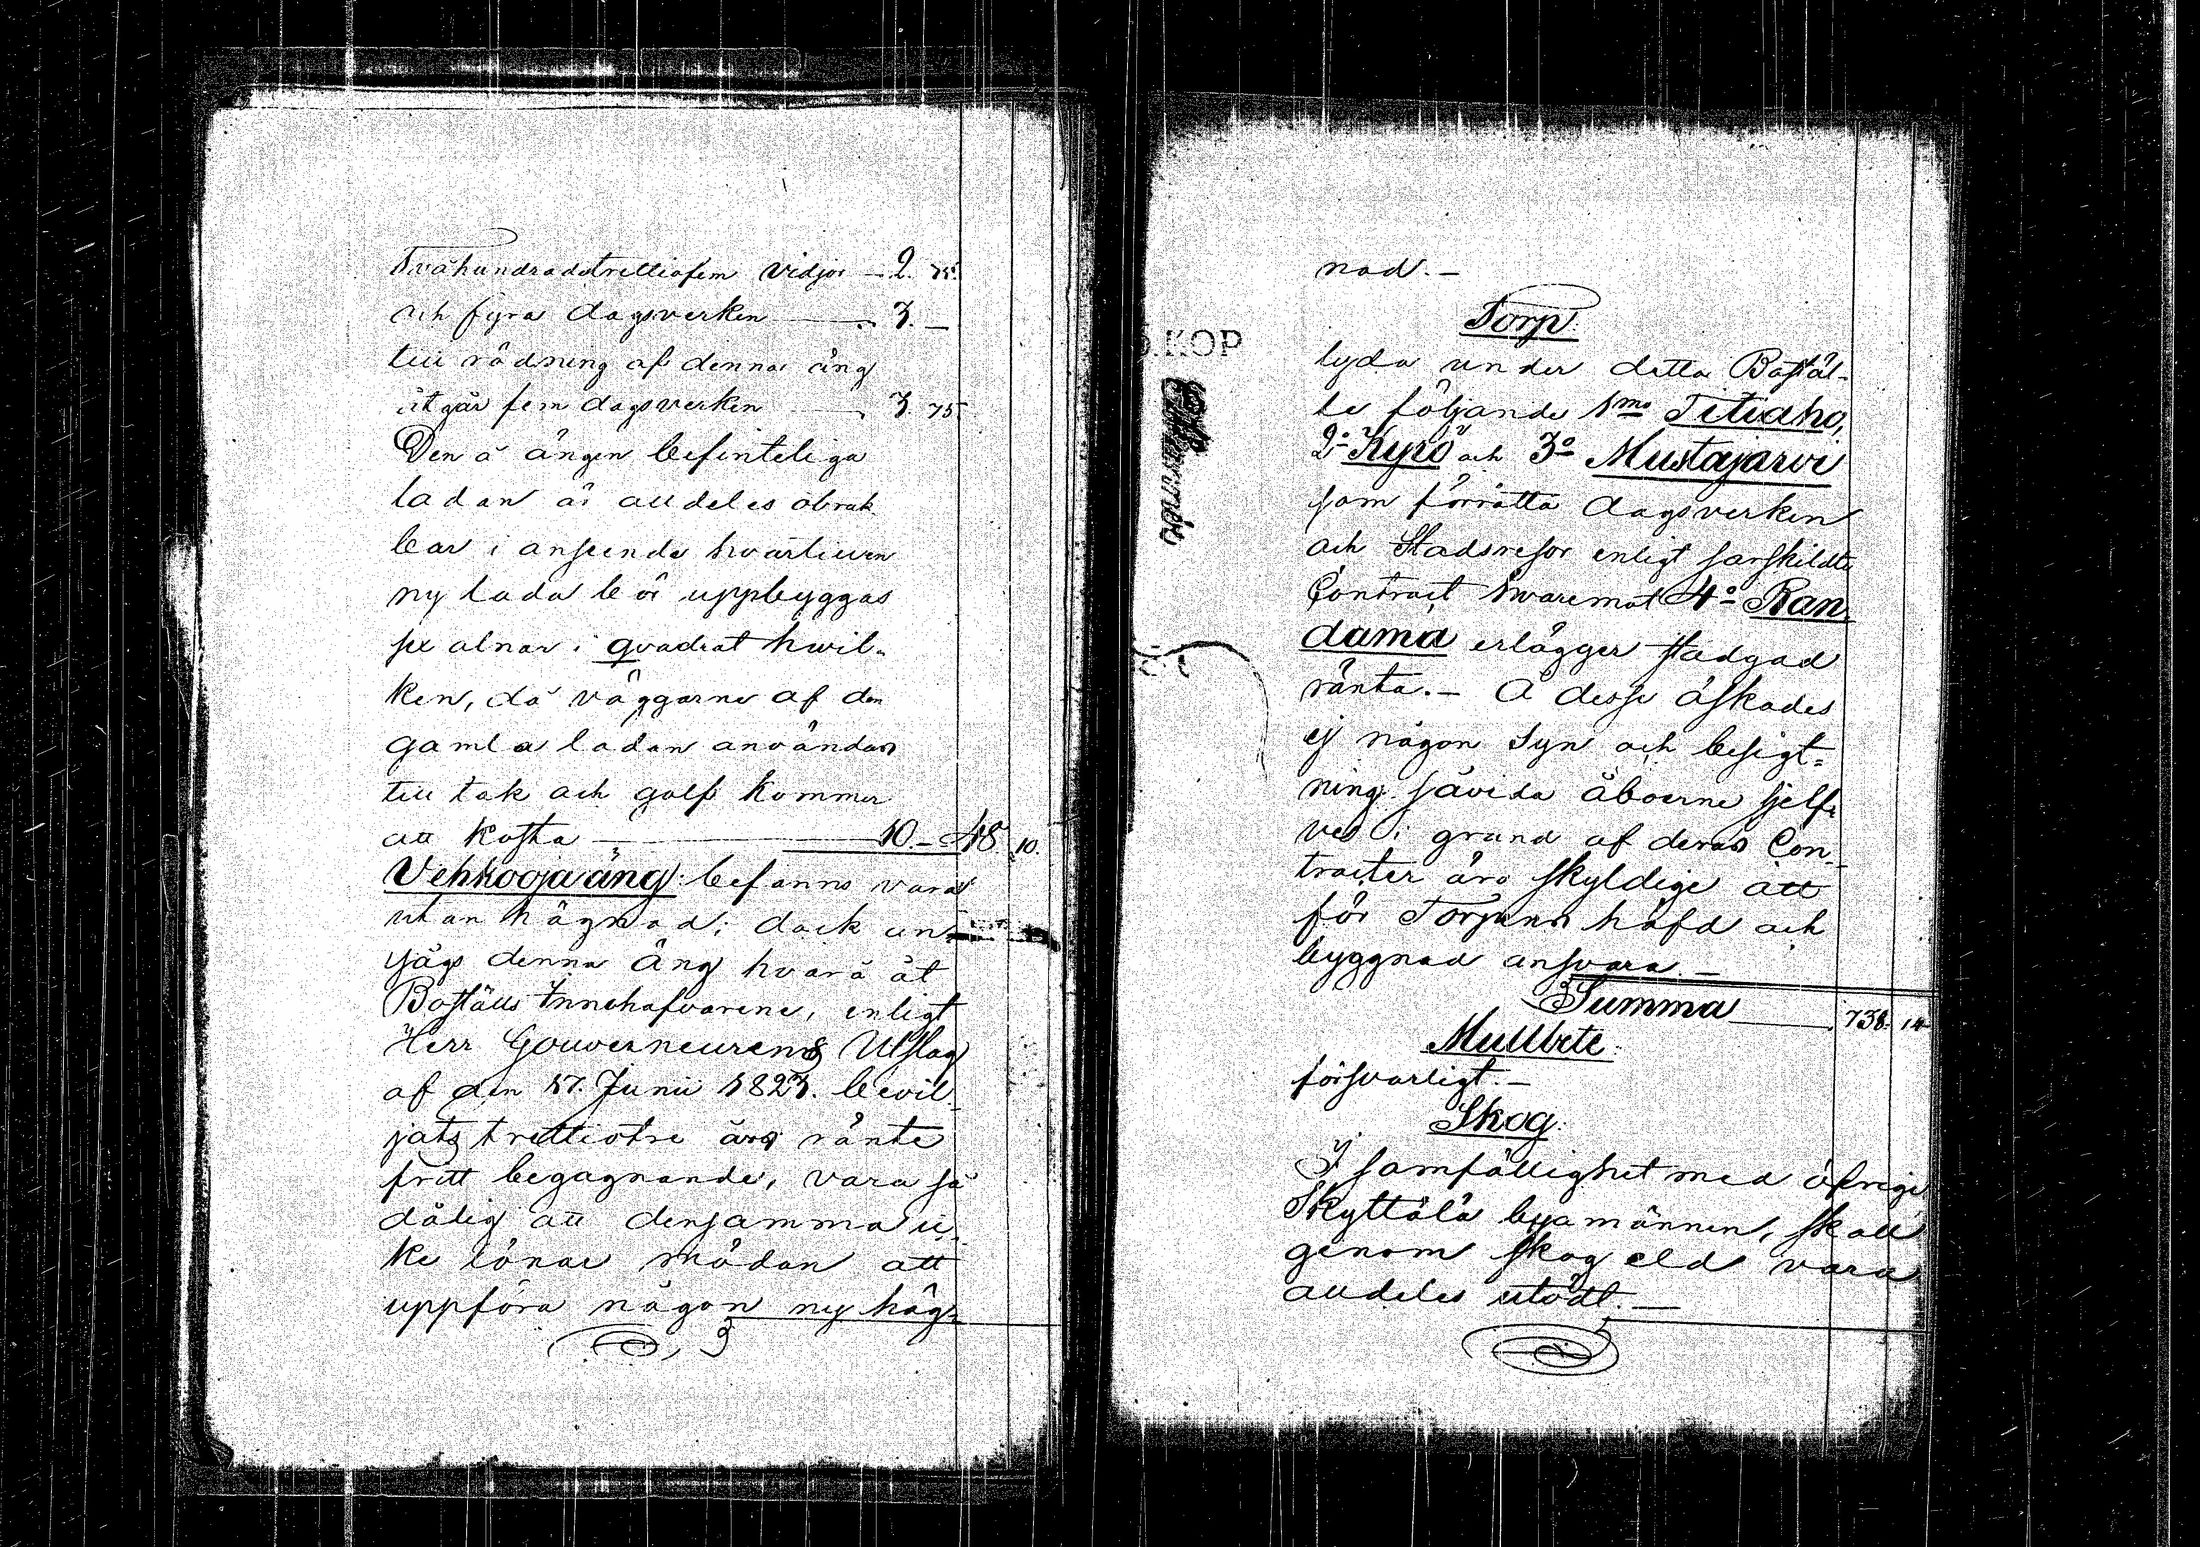 Tvåhundradetrettiofem vidjor — 2. 75.
och fyra dagsverken — 3. —
till rödning af denna äng
åtgår fem dagsverken — 3. 75
Den å ängen befinteliga
ladan är alldeles obruk
bar i anseende hvartill en
ny lada bör uppbyggas
sex alnar i quadrat hwil-
ken, då väggarne af den
gamla ladan användas
till tak och golf kommer
att kosta — 10. — 48. 10.
Vehkooja äng: befanns vara
utan hägnad; dock an-
sågs denna äng hvarå åt
Boställs Innehafvarene, enligt
Herr Gouverneurens Utslag
af den 17. Junii 1823. bevil-
jats trettiotre års ränte
fritt begagnande, vara så
dålig att densamma ic-
ke lönar mödan att
uppföra någon ny häg-
nad. —
Torp.
lyda under detta Bostäl-
le följande 1mo Titiaho,
2o Kyrö och 3o Mustajärvi
som förrätta dagsverken
och Stadsresor enligt särskildte
Contract hwaremot 4o Ran
dama erlägger stadgad
ränta. — Å desse äskades
ej någon Syn och besigt-
ning såvida åboerne sjelf-
ve i grund af deras Con-
tracter äro skyldige att
för Torpens häfd och
byggnad ansvara. —
Summa — 738. 14
Mullbete.
försvarligt. —
Skog.
I samfällighet med öfrige
Skyttälä byamännen, skall
genom skog eld vara
alldeles utödt. —
S.KOP